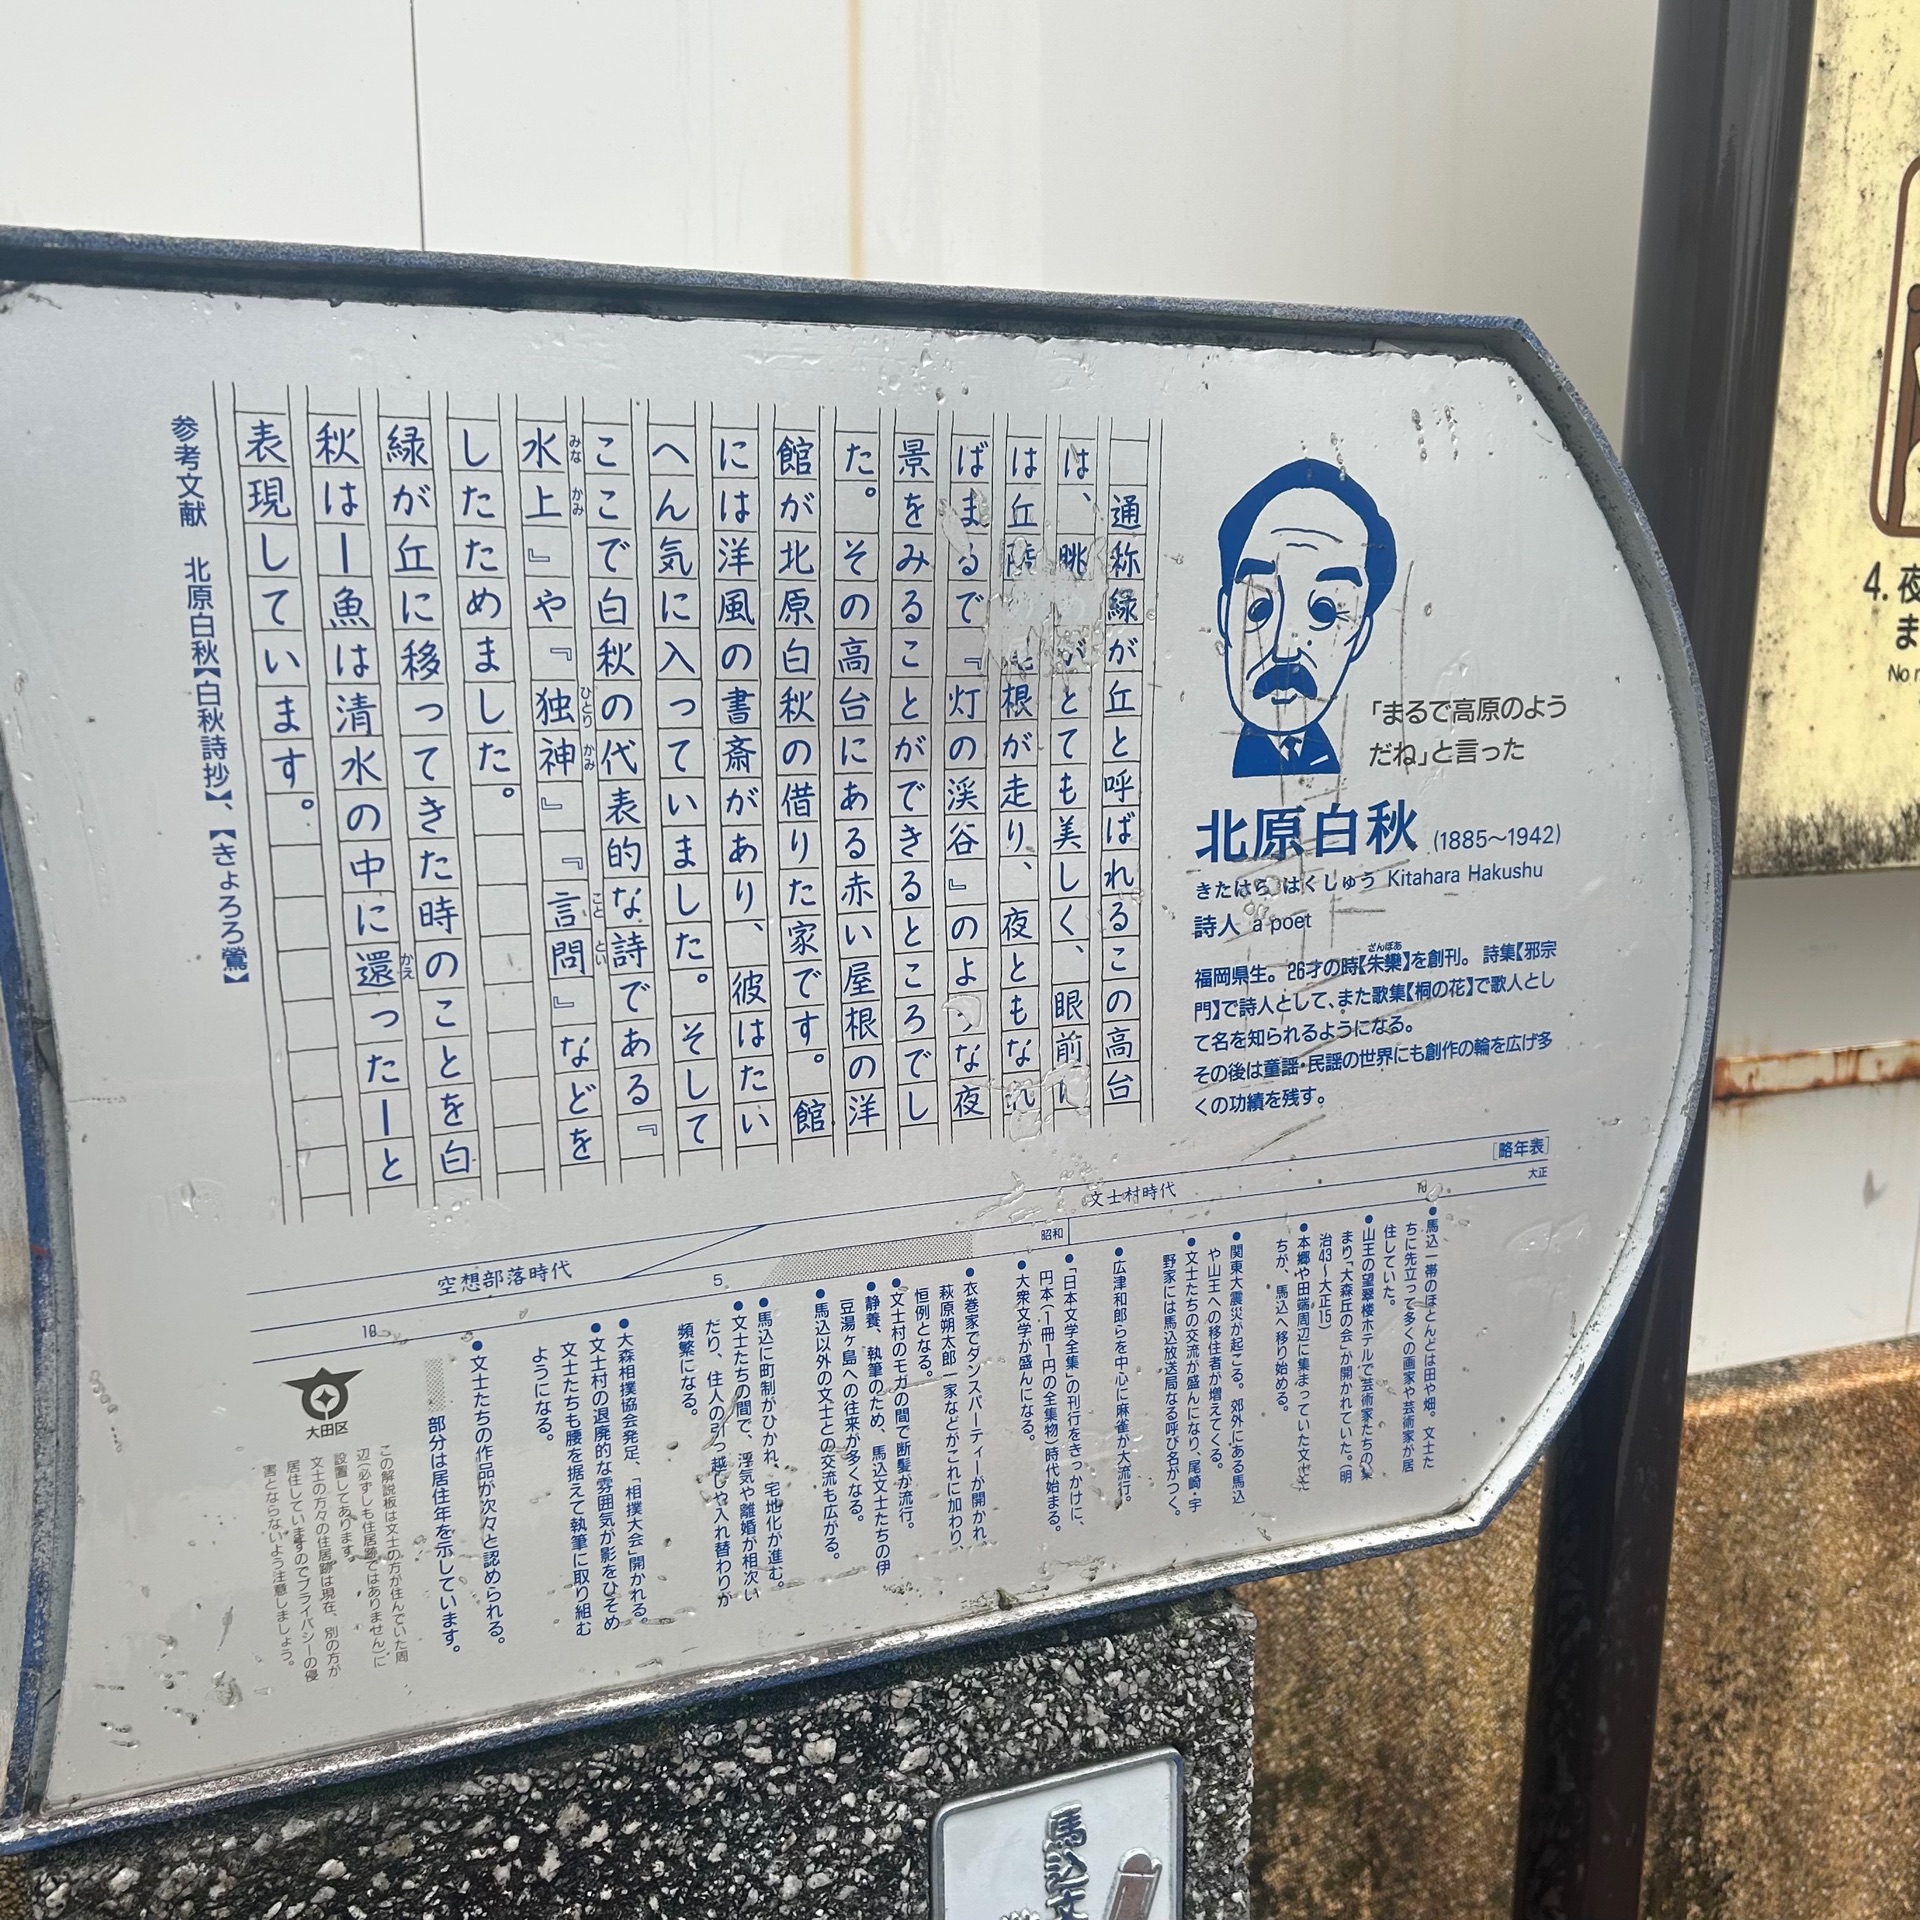 「まるで高原のよう
だね」と言った
北原白秋 (1885～1942)
きたはら はくしゅう Kitahara Hakushu
詩人 a poet
福岡県生。26才の時【朱欒】を創刊。詩集【邪宗
ざんぼあ
門】で詩人として、また歌集【桐の花】で歌人とし
て名を知られるようになる。
その後は童謡・民謡の世界にも創作の輪を広げ多
くの功績を残す。
通称緑が丘と呼ばれるこの高台
は、眺めがとても美しく、眼前に
は丘陵 根が走り、夜ともなれ
ばまるで『灯の渓谷』のような夜
景をみることができるところでし
た。その高台にある赤い屋根の洋
館が北原白秋の借りた家です。館
には洋風の書斎があり、彼はたい
へん気に入っていました。そして
ここで白秋の代表的な詩である『
水上』や『独神』『言問』などを
みな かみ ひとり かみ こと とい
したためました。
緑が丘に移ってきた時のことを白
秋はー魚は清水の中に還ったーと
かえ
表現しています。
参考文献 北原白秋【白秋詩抄】、【きょろろ鶯】
[略年表]
大正
文士村時代
昭和
空想部落時代
5
10
●馬込一帯のほとんどは田や畑。文士た
ちに先立って多くの画家や芸術家が居
住していた。
●山王の望翠楼ホテルで芸術家たちの集
まり「大森丘の会」が開かれていた。(明
治43～大正15)
●本郷や田端周辺に集まっていた文士た
ちが、馬込へ移り始める。
●関東大震災が起こる。郊外にある馬込
や山王への移住者が増えてくる。
●文士たちの交流が盛んになり、尾崎・宇
野家には馬込放送局なる呼び名がつく。
●広津和郎らを中心に麻雀が大流行。
●「日本文学全集」の刊行をきっかけに、
円本(1冊1円の全集物)時代始まる。
●大衆文学が盛んになる。
●衣巻家でダンスパーティーが開かれ、
萩原朔太郎一家などがこれに加わり、
恒例となる。
●文士村のモガの間で断髪が流行。
●静養、執筆のため、馬込文士たちの伊
豆湯ヶ島への往来が多くなる。
●馬込以外の文士との交流も広がる。
●馬込に町制がひかれ、宅地化が進む。
●文士たちの間で、浮気や離婚が相次い
だり、住人の引っ越しや入れ替わりが
頻繁になる。
●大森相撲協会発足、「相撲大会」開かれる。
●文士村の退廃的な雰囲気が影をひそめ
文士たちも腰を据えて執筆に取り組む
ようになる。
●文士たちの作品が次々と認められる。
部分は居住年を示しています。
大田区
この解説板は文士の方が住んでいた周
辺(必ずしも住居跡ではありません)に
設置してあります。
文士の方々の住居跡は現在、別の方が
居住していますのでプライバシーの侵
害とならないよう注意しましょう。
4. 夜
ま
馬込文